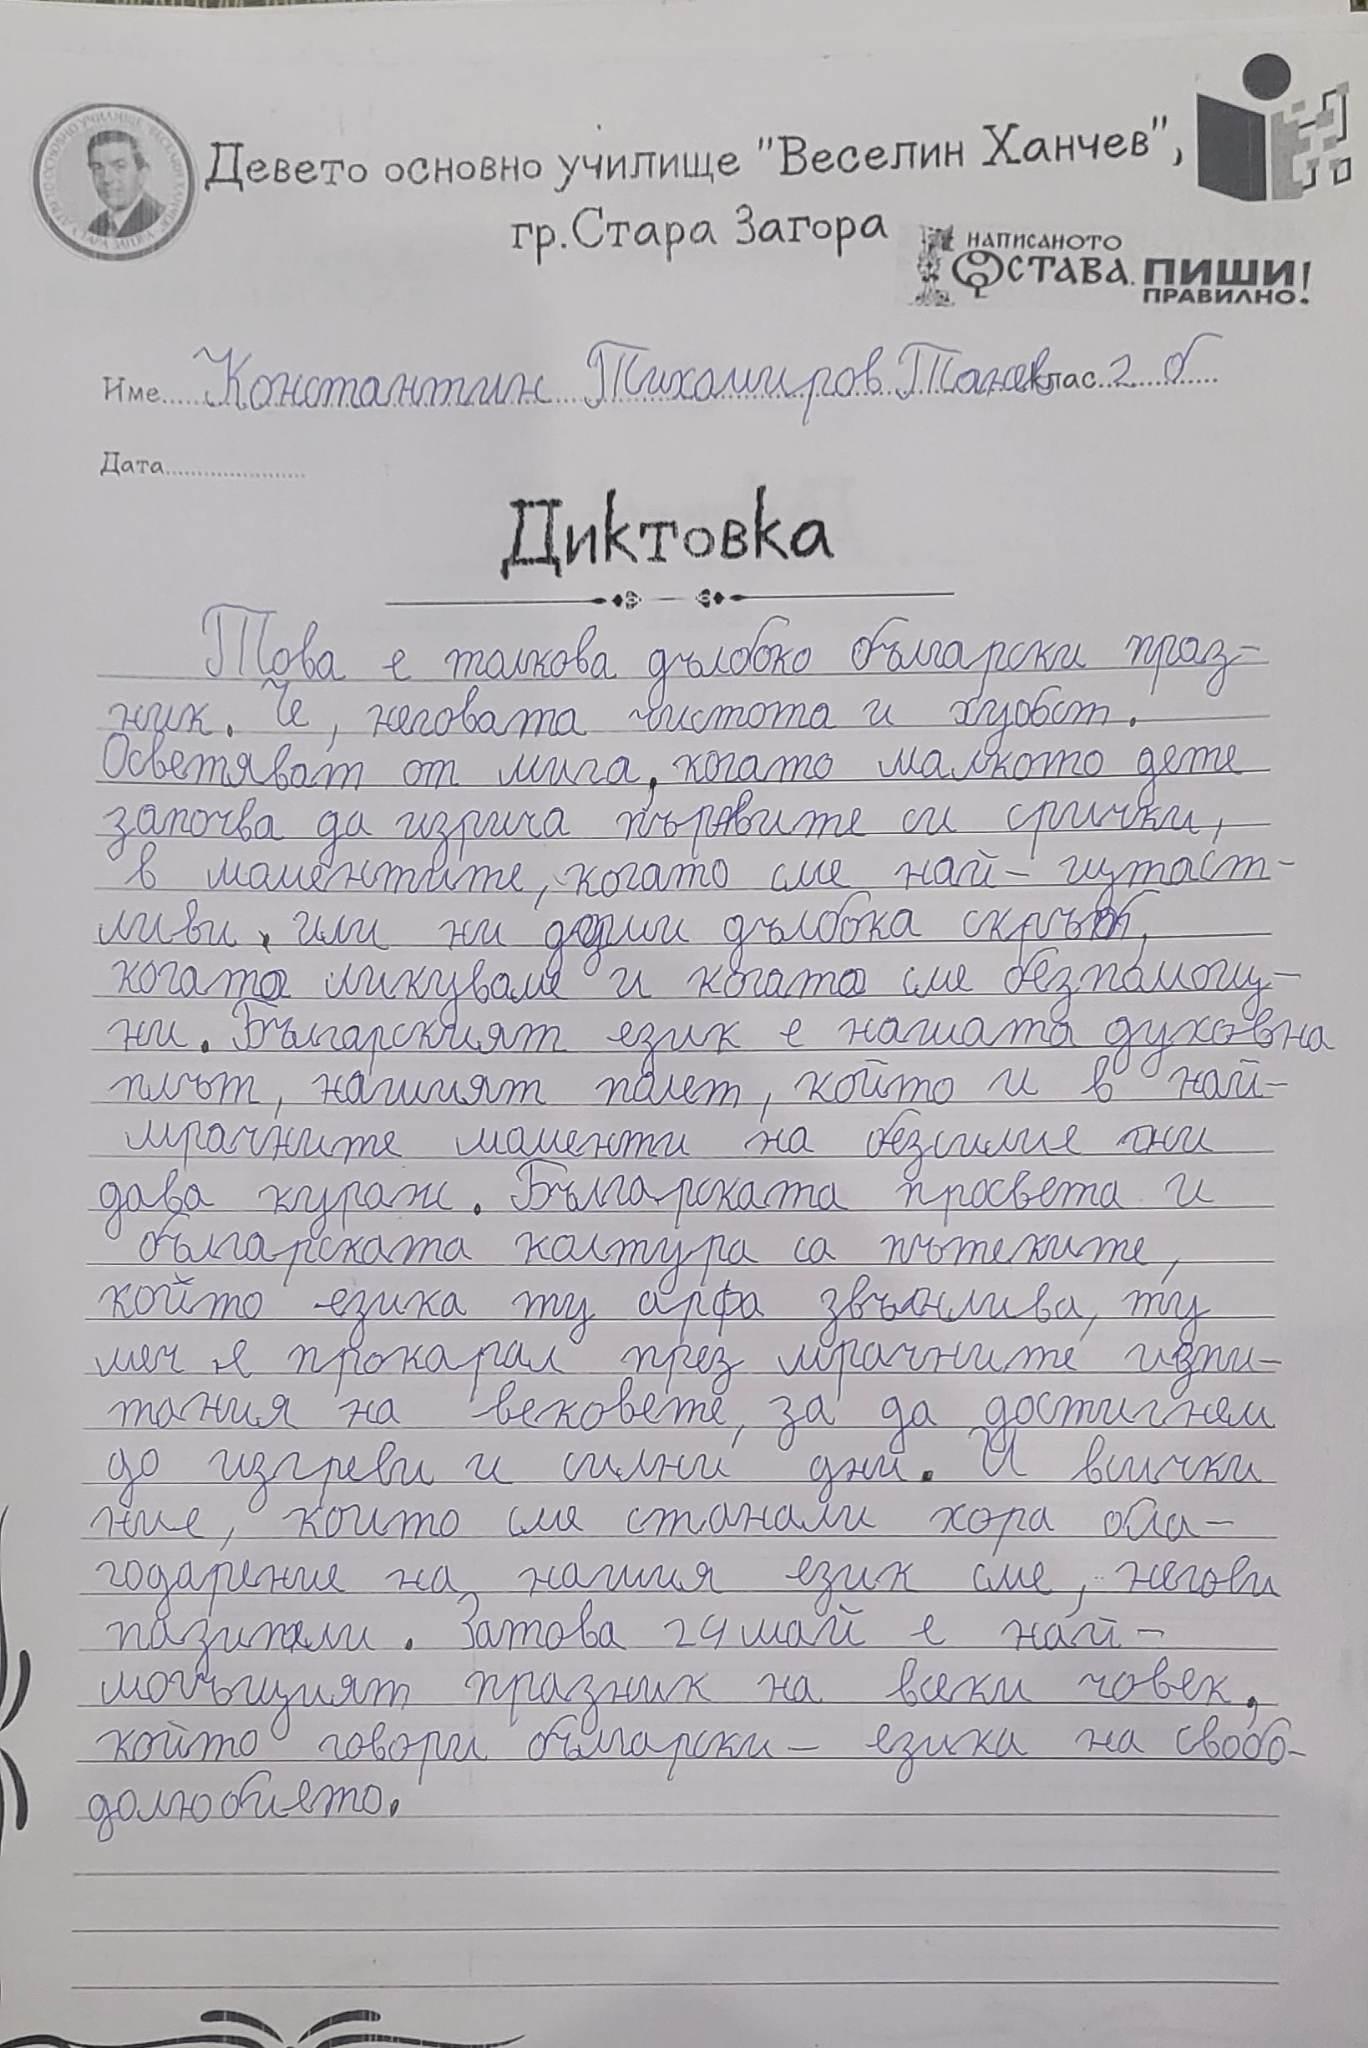 Девето основно училище "Веселин Ханчев",
гр.Стара Загора
НАПИСАНОТО
ОСТАВА. ПИШИ
ПРАВИЛНО!
Име Константин Тихомиров Танев клас 2 б
Дата
Диктовка
Това е толкова дълобко български праз-
ник. Че, неговата чистота и хубост.
Осветяват от мига, когато малкото дете
започва да изрича първите си срички,
в моментите, когато сме най-щтаст-
ливи, или ни души дълобка скръб,
когато ликуваме и когато сме безпомощ-
ни. Българският език е нашата духовна
плът, нашият полет, който и в най-
мрачните моменти на безсилие ни
дава кураж. Българската просвета и
българската култура са пътеките,
който езика ту арфа звънлива, ту
меч е прокарал през мрачните изпи-
тания на вековете, за да достигнем
до изгреви и силни дни. И всички
ние, които сме станали хора бла-
годарение на нашия език сме, негови
пазители. Затова 24 май е най-
могъщият празник на всеки човек,
който говори български- езика на свобо-
долюбието.